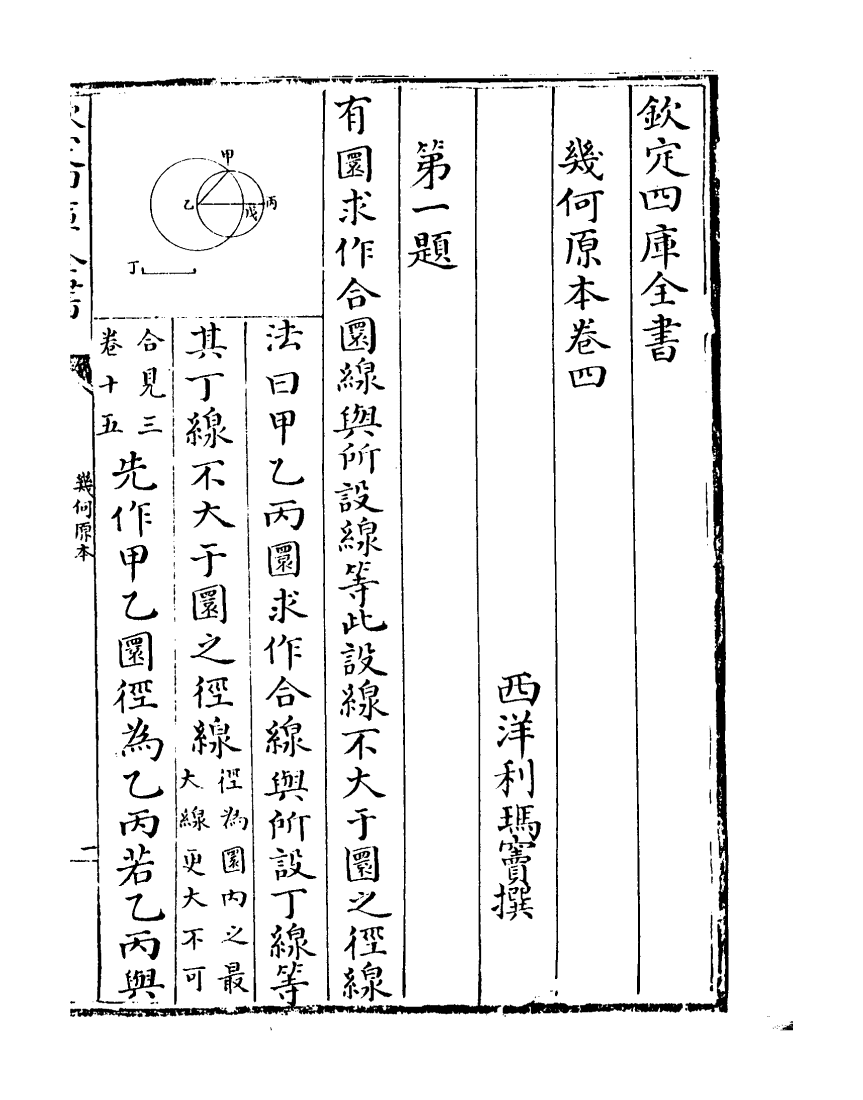 欽定四庫全書
幾何原本卷四
西洋利瑪竇撰
第一題
有圜求作合圜線與所設線等此設線不大于圜之徑線
甲
乙
丙
戊
丁
法曰甲乙丙圜求作合線與所設丁線等
其丁線不大于圜之徑線徑為圜内之最
大線更大不可
合見三
卷十五
先作甲乙圜徑為乙丙若乙丙與
欽定四庫全書
幾何原本
一